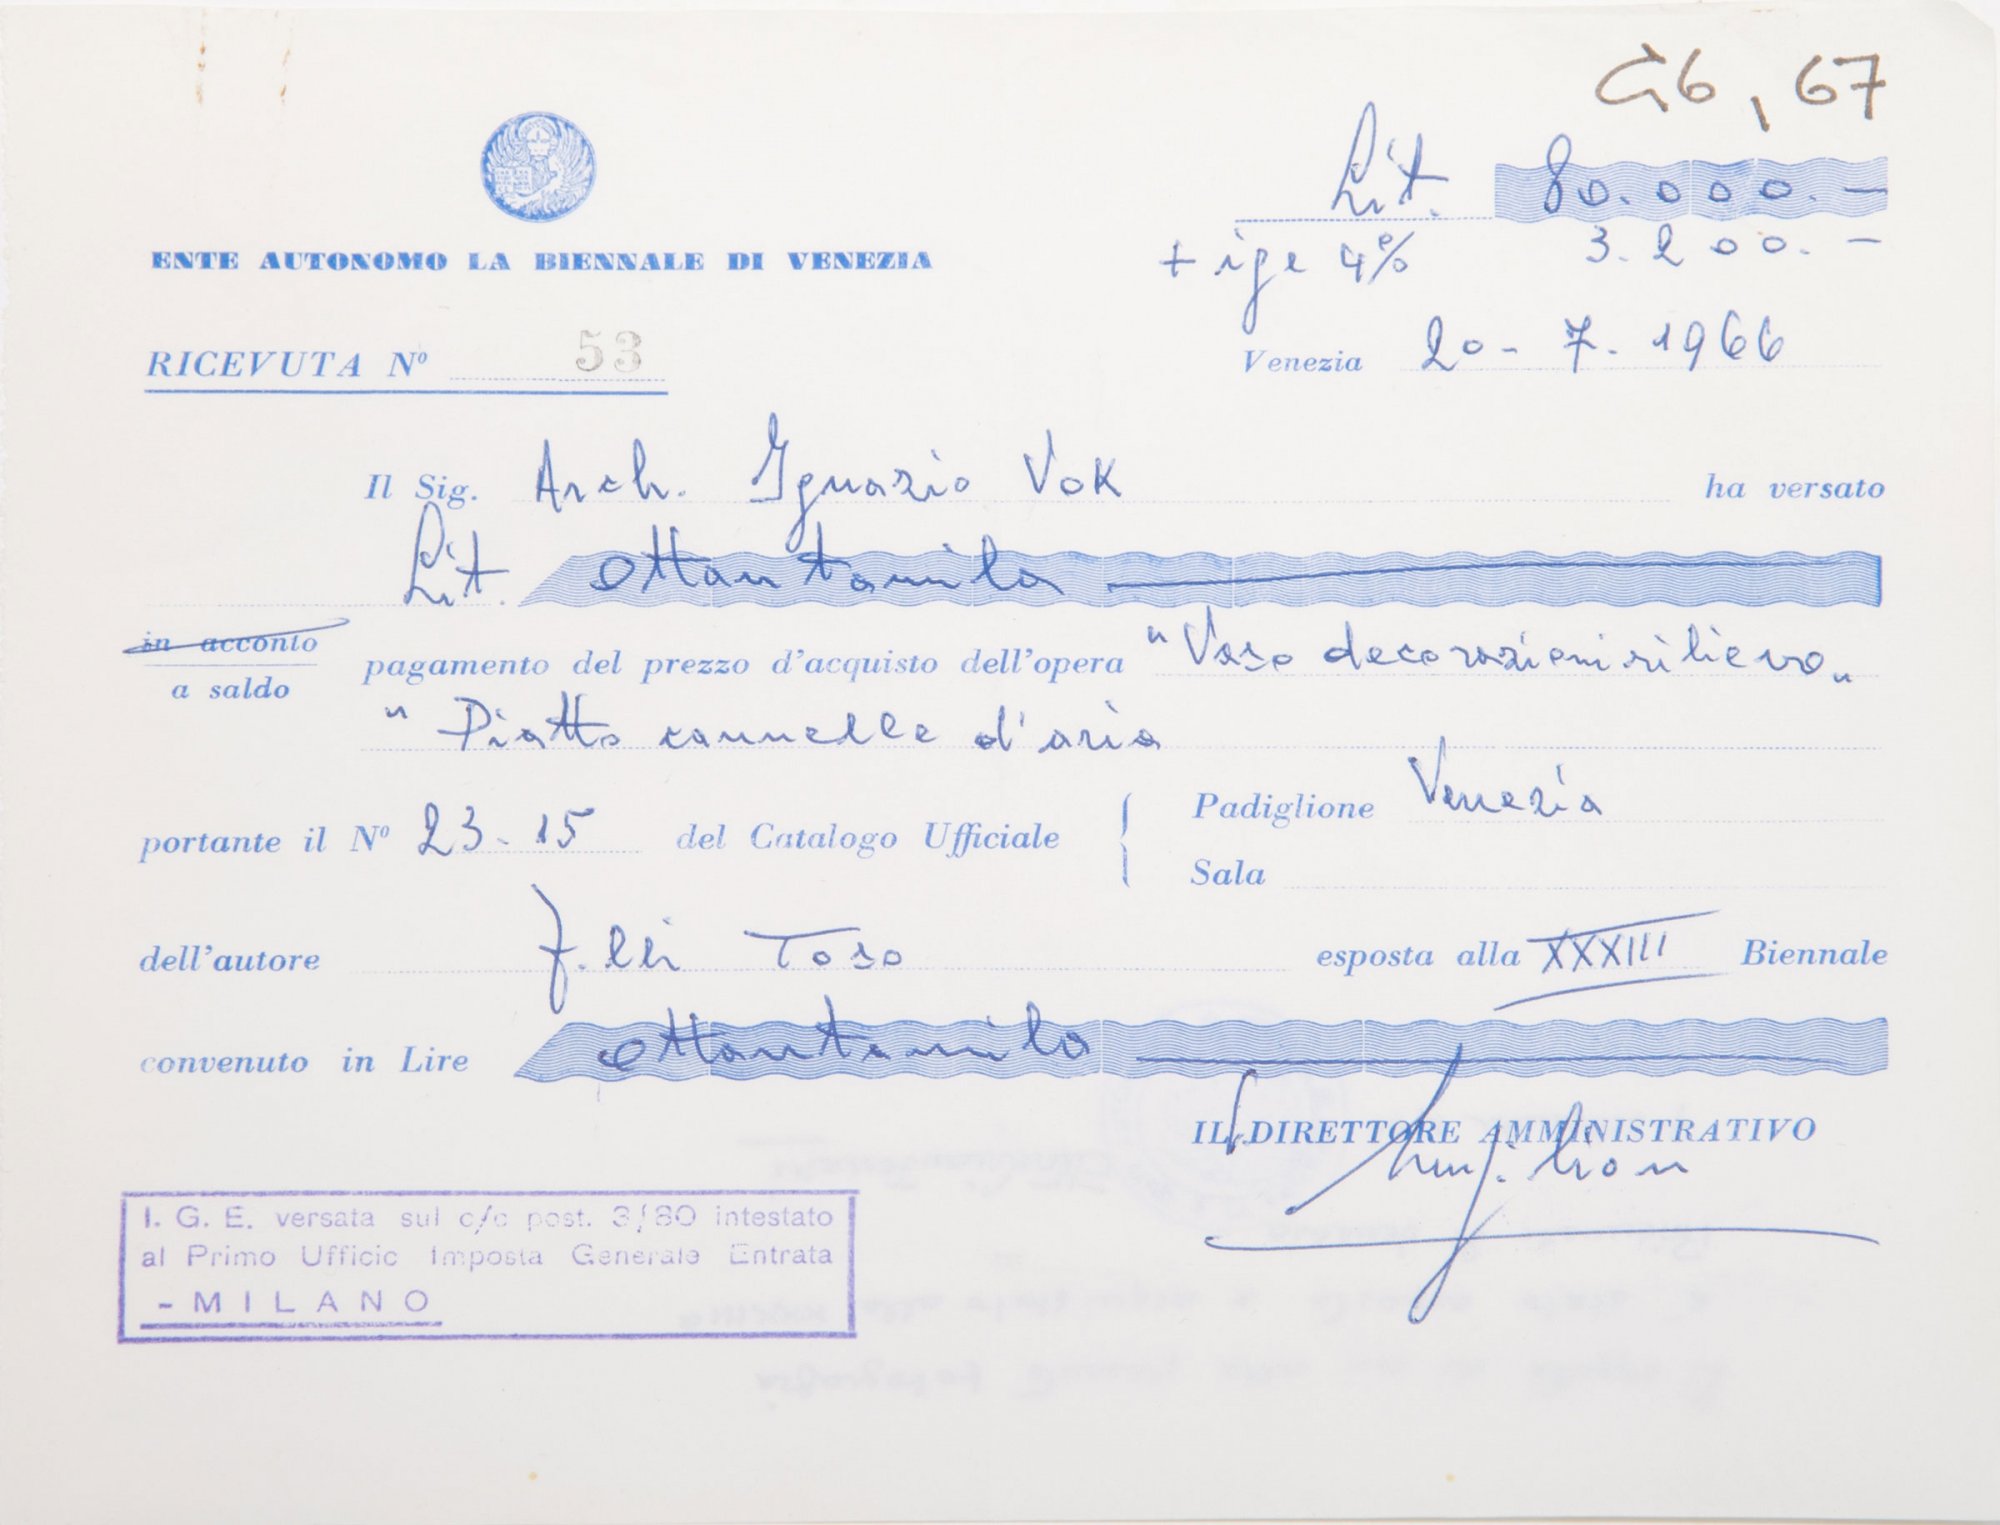 G6, 67
Lit. 80.000.-
+ ige 4% 3.200.-
ENTE AUTONOMO LA BIENNALE DI VENEZIA
RICEVUTA Nº 53
Venezia 20-7.1966
Il Sig. Arch. Ignazio Vok ha versato
Lit. ottantamila
in acconto
a saldo
pagamento del prezzo d'acquisto dell'opera "Vaso decorazioni rilievo"
"Piatto cannelle d'aria
portante il Nº 23-15 del Catalogo Ufficiale
Padiglione Venezia
Sala
dell'autore F.lli Toso esposta alla XXXIII Biennale
convenuto in Lire ottantamila
IL DIRETTORE AMMINISTRATIVO
I. G. E. versata sul c/c post. 3/80 intestato
al Primo Ufficio Imposta Generale Entrata
- MILANO